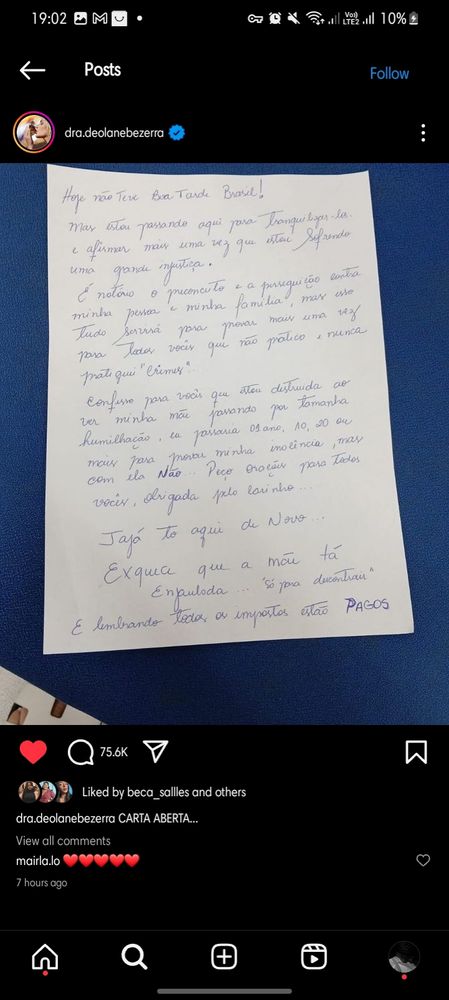 19:02
Vo))
LTE2
10%
Posts
Follow
dra.deolanebezerra
Hoje não Teve Boa Tarde Brasil!
Mas estou passando aqui para Tranquilizar-los
e afirmar mais uma vez que estou Sofrendo
uma grande injustiça.
É notório o preconceito e a perseguição contra
minha pessoa e minha família, mas isso
tudo servirá para provar mais uma vez
para todos vocês que não pratico e nunca
pratiquei "Crimes"...
Confesso para vocês que estou distruida ao
ver minha mãe passando por tamanha
humilhação, eu passaria 01 ano, 10, 20 ou
mais para provar minha inocência, mas
com ela Não... Peço orações para todos
vocês, obrigada pelo carinho...
Jajá to aqui de Novo...
Exquea que a mãe tá
Enjaulada... "só para descontrair"
E lembrando todos os impostos estão PAGOS
75.6K
Liked by beca_sallles and others
dra.deolanebezerra CARTA ABERTA...
View all comments
mairla.lo ❤️❤️❤️❤️❤️
7 hours ago